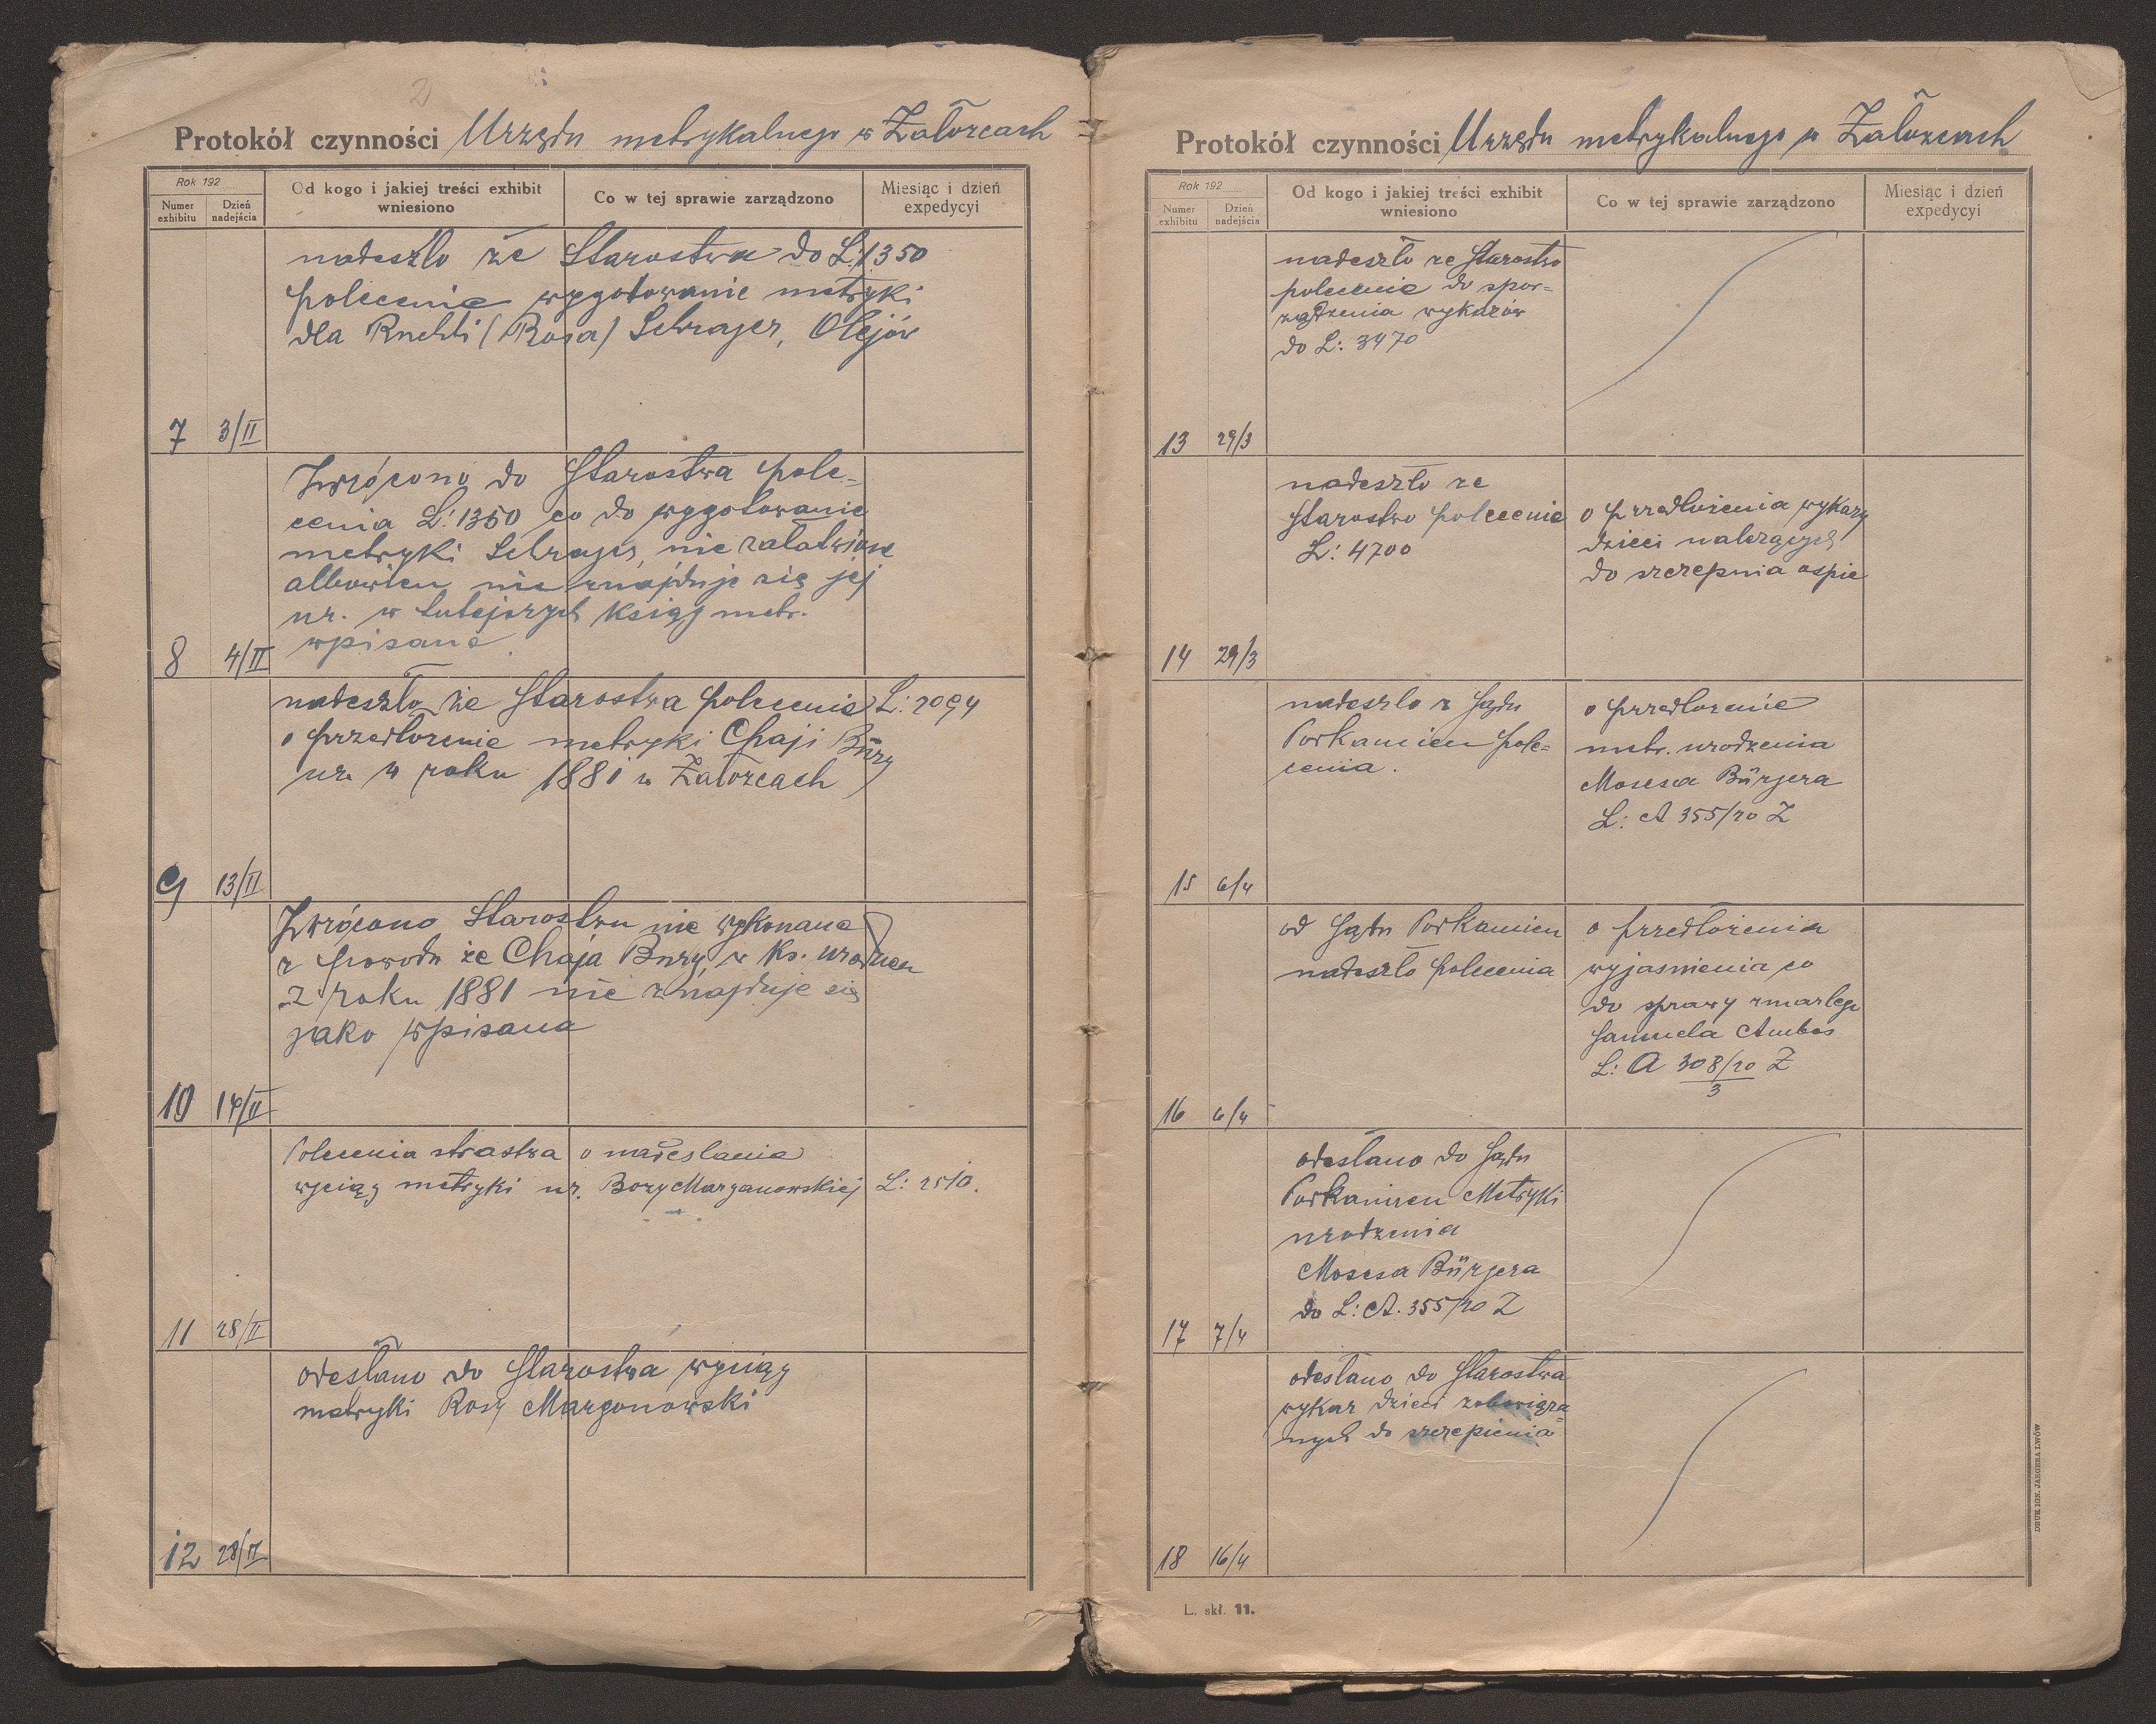 2
Protokół czynności Urzędu metrykalnego w Załoźcach
Rok 192
Numer exhibitu
Dzień nadejścia
Od kogo i jakiej treści exhibit wniesiono
Co w tej sprawie zarządzono
Miesiąc i dzień expedycyi
nadeszło ze Starostwa do L: 1350
polecenie wygotowanie metryki
dla Ruchli (Rosa) Schrager, Olejów
7 3/II
Zwrócono do Starostwa pole-
cenia L: 1350 co do wygotowanie
metryki Schrager, nie załatwione
albowiem nie znajduje się jej
ur. w tutejszych księg metr.
wpisane.
8 4/II
nadeszło ze Starostwa polecenie L: 2094
o przedłożenie metryki Chaji Bury
ur. w roku 1881 w Załoźcach
9 13/II
Zwrócono Starostwu nie wykonane
z powodu że Chaja Bury, w ks. urodzen
z roku 1881 nie znajduje się
jako wpisana
10 14/II
Polecenia strastwa o nadeslania
wyciąg metryki ur. Rozy Marganowskiej L: 2510.
11 28/II
odesłano do Starostwa wyciąg
metryki Rosy Margonowski
12 28/II
Protokół czynności Urzędu metrykalnego w Załoźcach
Rok 192
Numer exhibitu
Dzień nadejścia
Od kogo i jakiej treści exhibit wniesiono
Co w tej sprawie zarządzono
Miesiąc i dzień expedycyi
nadeszło ze Starostwo
polecenie do spor-
ządzenia wykazów
do L: 3470
13 29/3
nadeszło ze
Starostwo polecenie
L: 4700
o przedłożenia wykazy
dzieci należących
do szczepnia ospie
14 29/3
nadeszlo z Sądu
Podkamien pole-
cenia.
o przedlozenie
metr. urodzenia
Mosesa Bürgera
L: A 355/20 Z
15 6/4
od Sądu Podkamien
nadeszło polecenia
o przedłożenia
wyjasnienia co
do sprawy zmarlego
Samuela Ambos
L: A 308/20 Z
3
16 6/4
odesłano do Sądu
Podkamien Metryki
urodzenia
Mosesa Bürgera
do L: A. 355/20 Z
17 7/4
odesłano do Starostwa
wykaz dzieci zobowiąza-
nych do szczepienia
18 16/4
L. skł. 11.
DRUK IGN. JAEGERA LWÓW